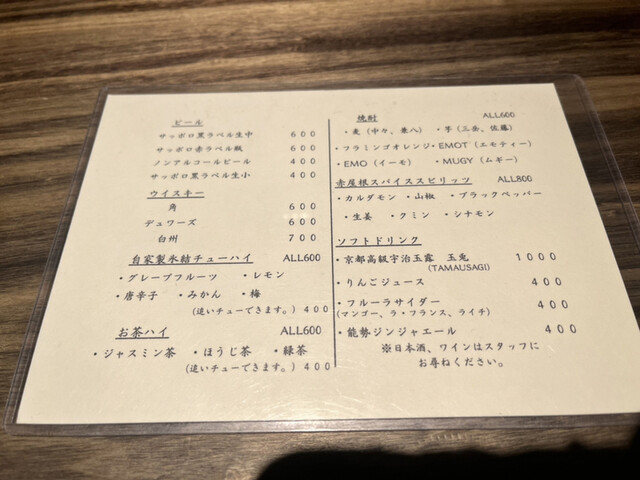 ビール
サッポロ黒ラベル生中 600
サッポロ赤ラベル瓶 600
ノンアルコールビール 400
サッポロ黒ラベル生小 400
ウイスキー
角 600
デュワーズ 600
白州 700
自家製氷結チューハイ ALL600
・グレープフルーツ ・レモン
・唐辛子 ・みかん ・梅
(追いチューできます。) 400
お茶ハイ ALL600
・ジャスミン茶 ・ほうじ茶 ・緑茶
(追いチューできます。) 400
焼酎 ALL600
・麦(中々、兼八) ・芋(三岳、佐藤)
・フラミンゴオレンジ・EMOT(エモティー)
・EMO(イーモ) ・MUGY(ムギー)
赤屋根スパイススピリッツ ALL800
・カルダモン ・山椒 ・ブラックペッパー
・生姜 ・クミン ・シナモン
ソフトドリンク
・京都高級宇治玉露 玉兎 1000
(TAMAUSAGI)
・りんごジュース 400
・フルーラサイダー 400
(マンゴー、ラ・フランス、ライチ)
・能勢ジンジャエール 400
※日本酒、ワインはスタッフに
お尋ねください。